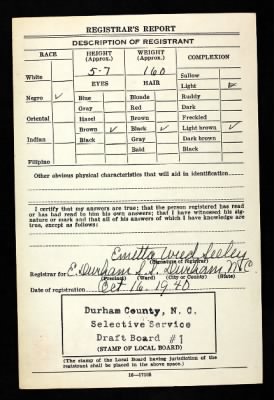 REGISTRAR'S REPORT
DESCRIPTION OF REGISTRANT
RACE HEIGHT (Approx.) WEIGHT (Approx.) COMPLEXION
5-7 160
White EYES HAIR Sallow
Light ✓
Negro ✓ Blue Blonde Ruddy
Gray Red Dark
Oriental Hazel Brown Freckled
Brown ✓ Black ✓ Light brown ✓
Indian Black Gray Dark brown
Bald Black
Filipino
Other obvious physical characteristics that will aid in identification
I certify that my answers are true; that the person registered has read
or has had read to him his own answers; that I have witnessed his sig-
nature or mark and that all of his answers of which I have knowledge are
true, except as follows:
Emetta Weed Seeley
(Signature of registrar)
Registrar for E. Durham S.S. Durham N.C.
(Precinct) (Ward) (City or County) (State)
Date of registration Oct 16. 1940
Durham County, N. C.
Selective Service
Draft Board #1
(STAMP OF LOCAL BOARD)
(The stamp of the Local Board having jurisdiction of the
registrant shall be placed in the above space.)